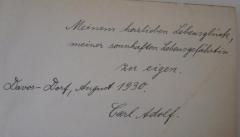 Meinem herzlieben Lebensglück,
meiner sonnhaften Lebensgefährtin
zu eigen.
Davos-Dorf, August 1930.
Carl Adolf.